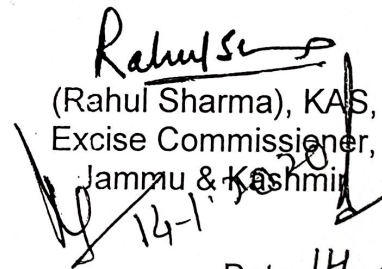 (Rahul Sharma), KAS,
Excise Commissioner,
Jammu & Kashmir
14-1-2020
14